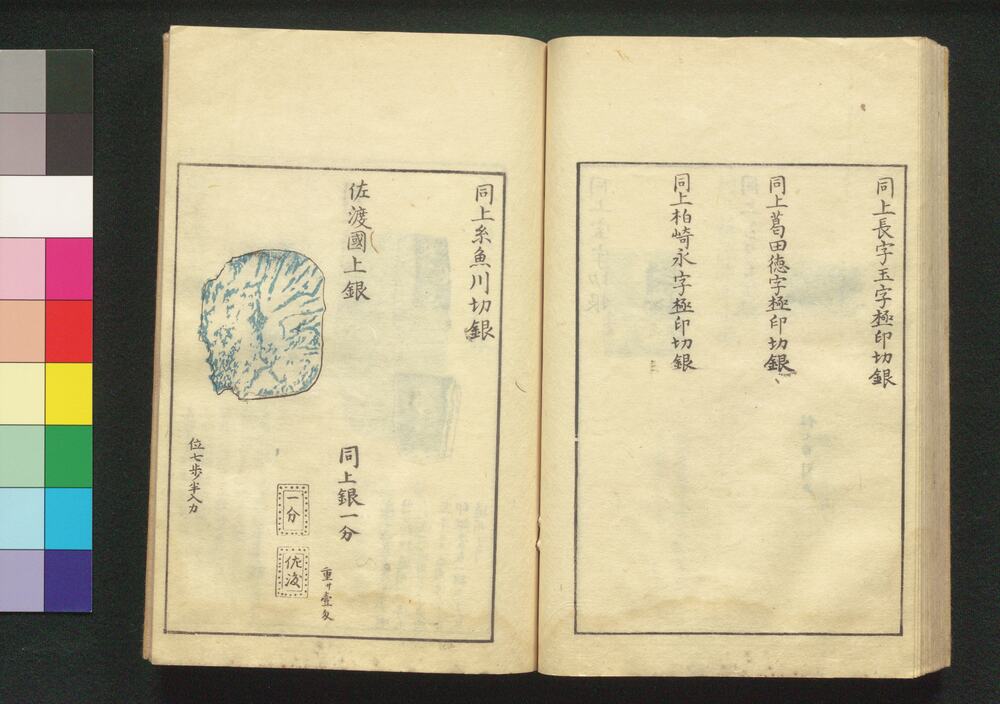 同上長字玉字極印切銀
同上葛田徳字極印切銀
同上柏崎永字極印切銀
同上糸魚川切銀
佐渡國上銀
位七歩半入カ
同上銀一分
重サ壹匁
一分
佐渡